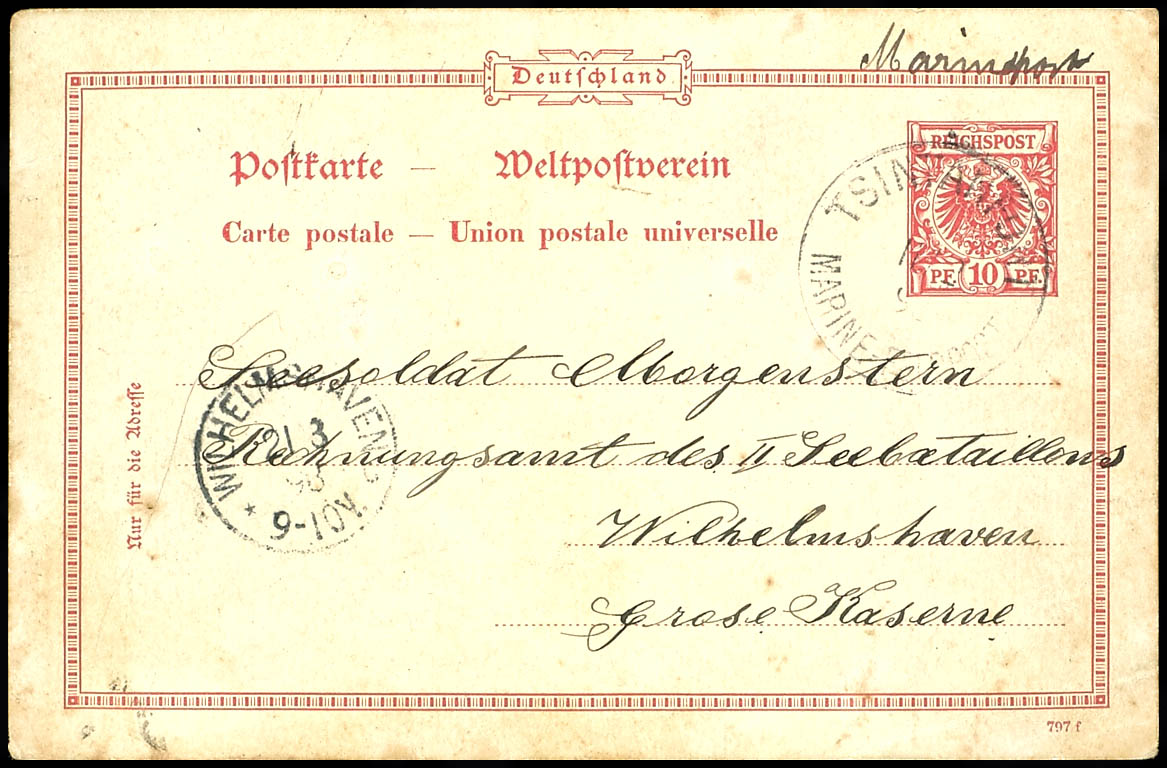 Marinepost
Deutschland
Postkarte — Weltpostverein
Carte postale — Union postale universelle
REICHSPOST
PF. 10 PF.
MARINE-
Seesoldat Morgenstern
Rechnungsamt des II Seebataillons
Wilhelmshaven
Grose Kaserne
WILHELMSHAVEN
21 3
98
9-10V.
Nur für die Adresse
797 f